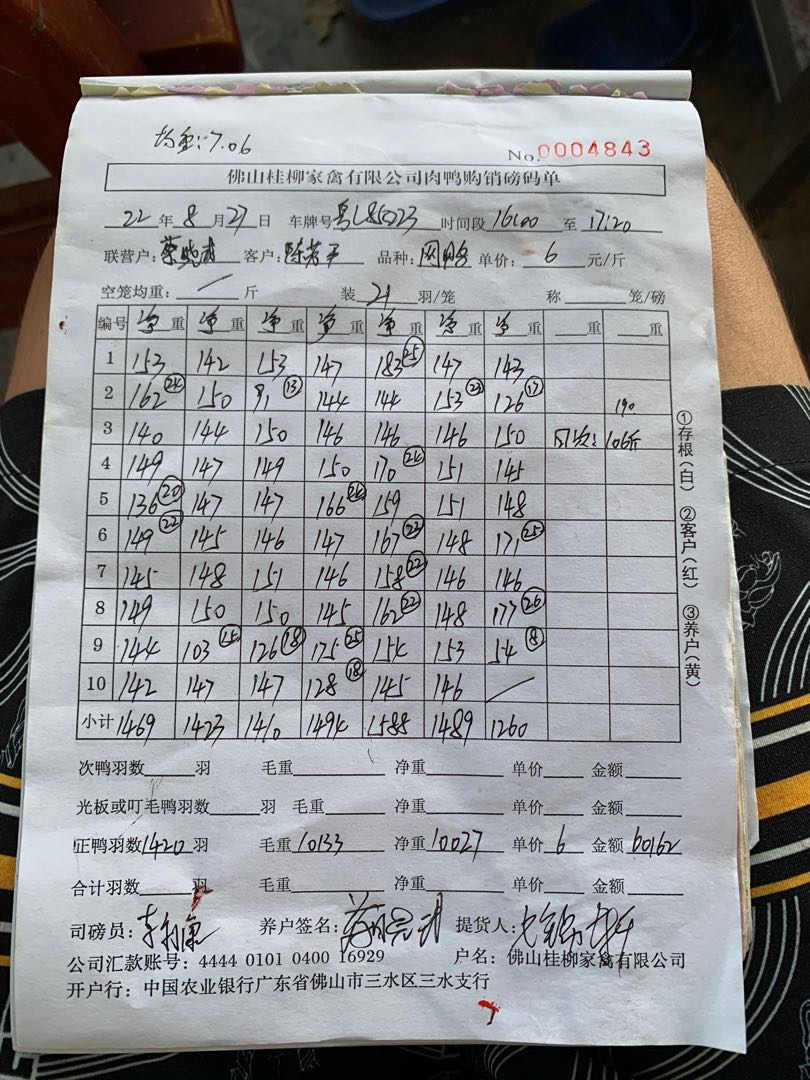 均重:7.06
No.0004843
佛山桂柳家禽有限公司肉鸭购销磅码单
22年8月27日 车牌号粤L85023 时间段16:00至17:20
联营户: 客户: 品种: 单价:6元/斤
空笼均重:/斤 装21羽/笼 称 笼/磅
编号 净重 净重 净重 净重 净重 净重 净重 重 重
1 153 142 153 147 183㉕ 147 143
2 162㉔ 150 91⑬ 144 144 153㉓ 126⑰ 190
3 140 144 150 146 146 146 150 106斤
4 149 147 149 150 170㉔ 151 145
5 136⑳ 147 147 166㉔ 159 151 148
6 149㉒ 145 146 147 167㉓ 148 171㉕
7 145 148 151 146 158㉒ 146 146
8 149 150 150 145 162㉒ 148 177㉖
9 144 103⑮ 126⑱ 175㉕ 154 153 54⑧
10 142 147 147 128⑱ 145 146 /
小计 1469 1423 1410 1494 1588 1489 1260
①存根(白) ②客户(红) ③养户(黄)
次鸭羽数 羽 毛重 净重 单价 金额
光板或叮毛鸭羽数 羽 毛重 净重 单价 金额
正鸭羽数1420羽 毛重10133 净重10027 单价6 金额60162
合计羽数 羽 毛重 净重 单价 金额
司磅员: 养户签名: 提货人:
公司汇款账号:4444 0101 0400 16929 户名:佛山桂柳家禽有限公司
开户行:中国农业银行广东省佛山市三水区三水支行